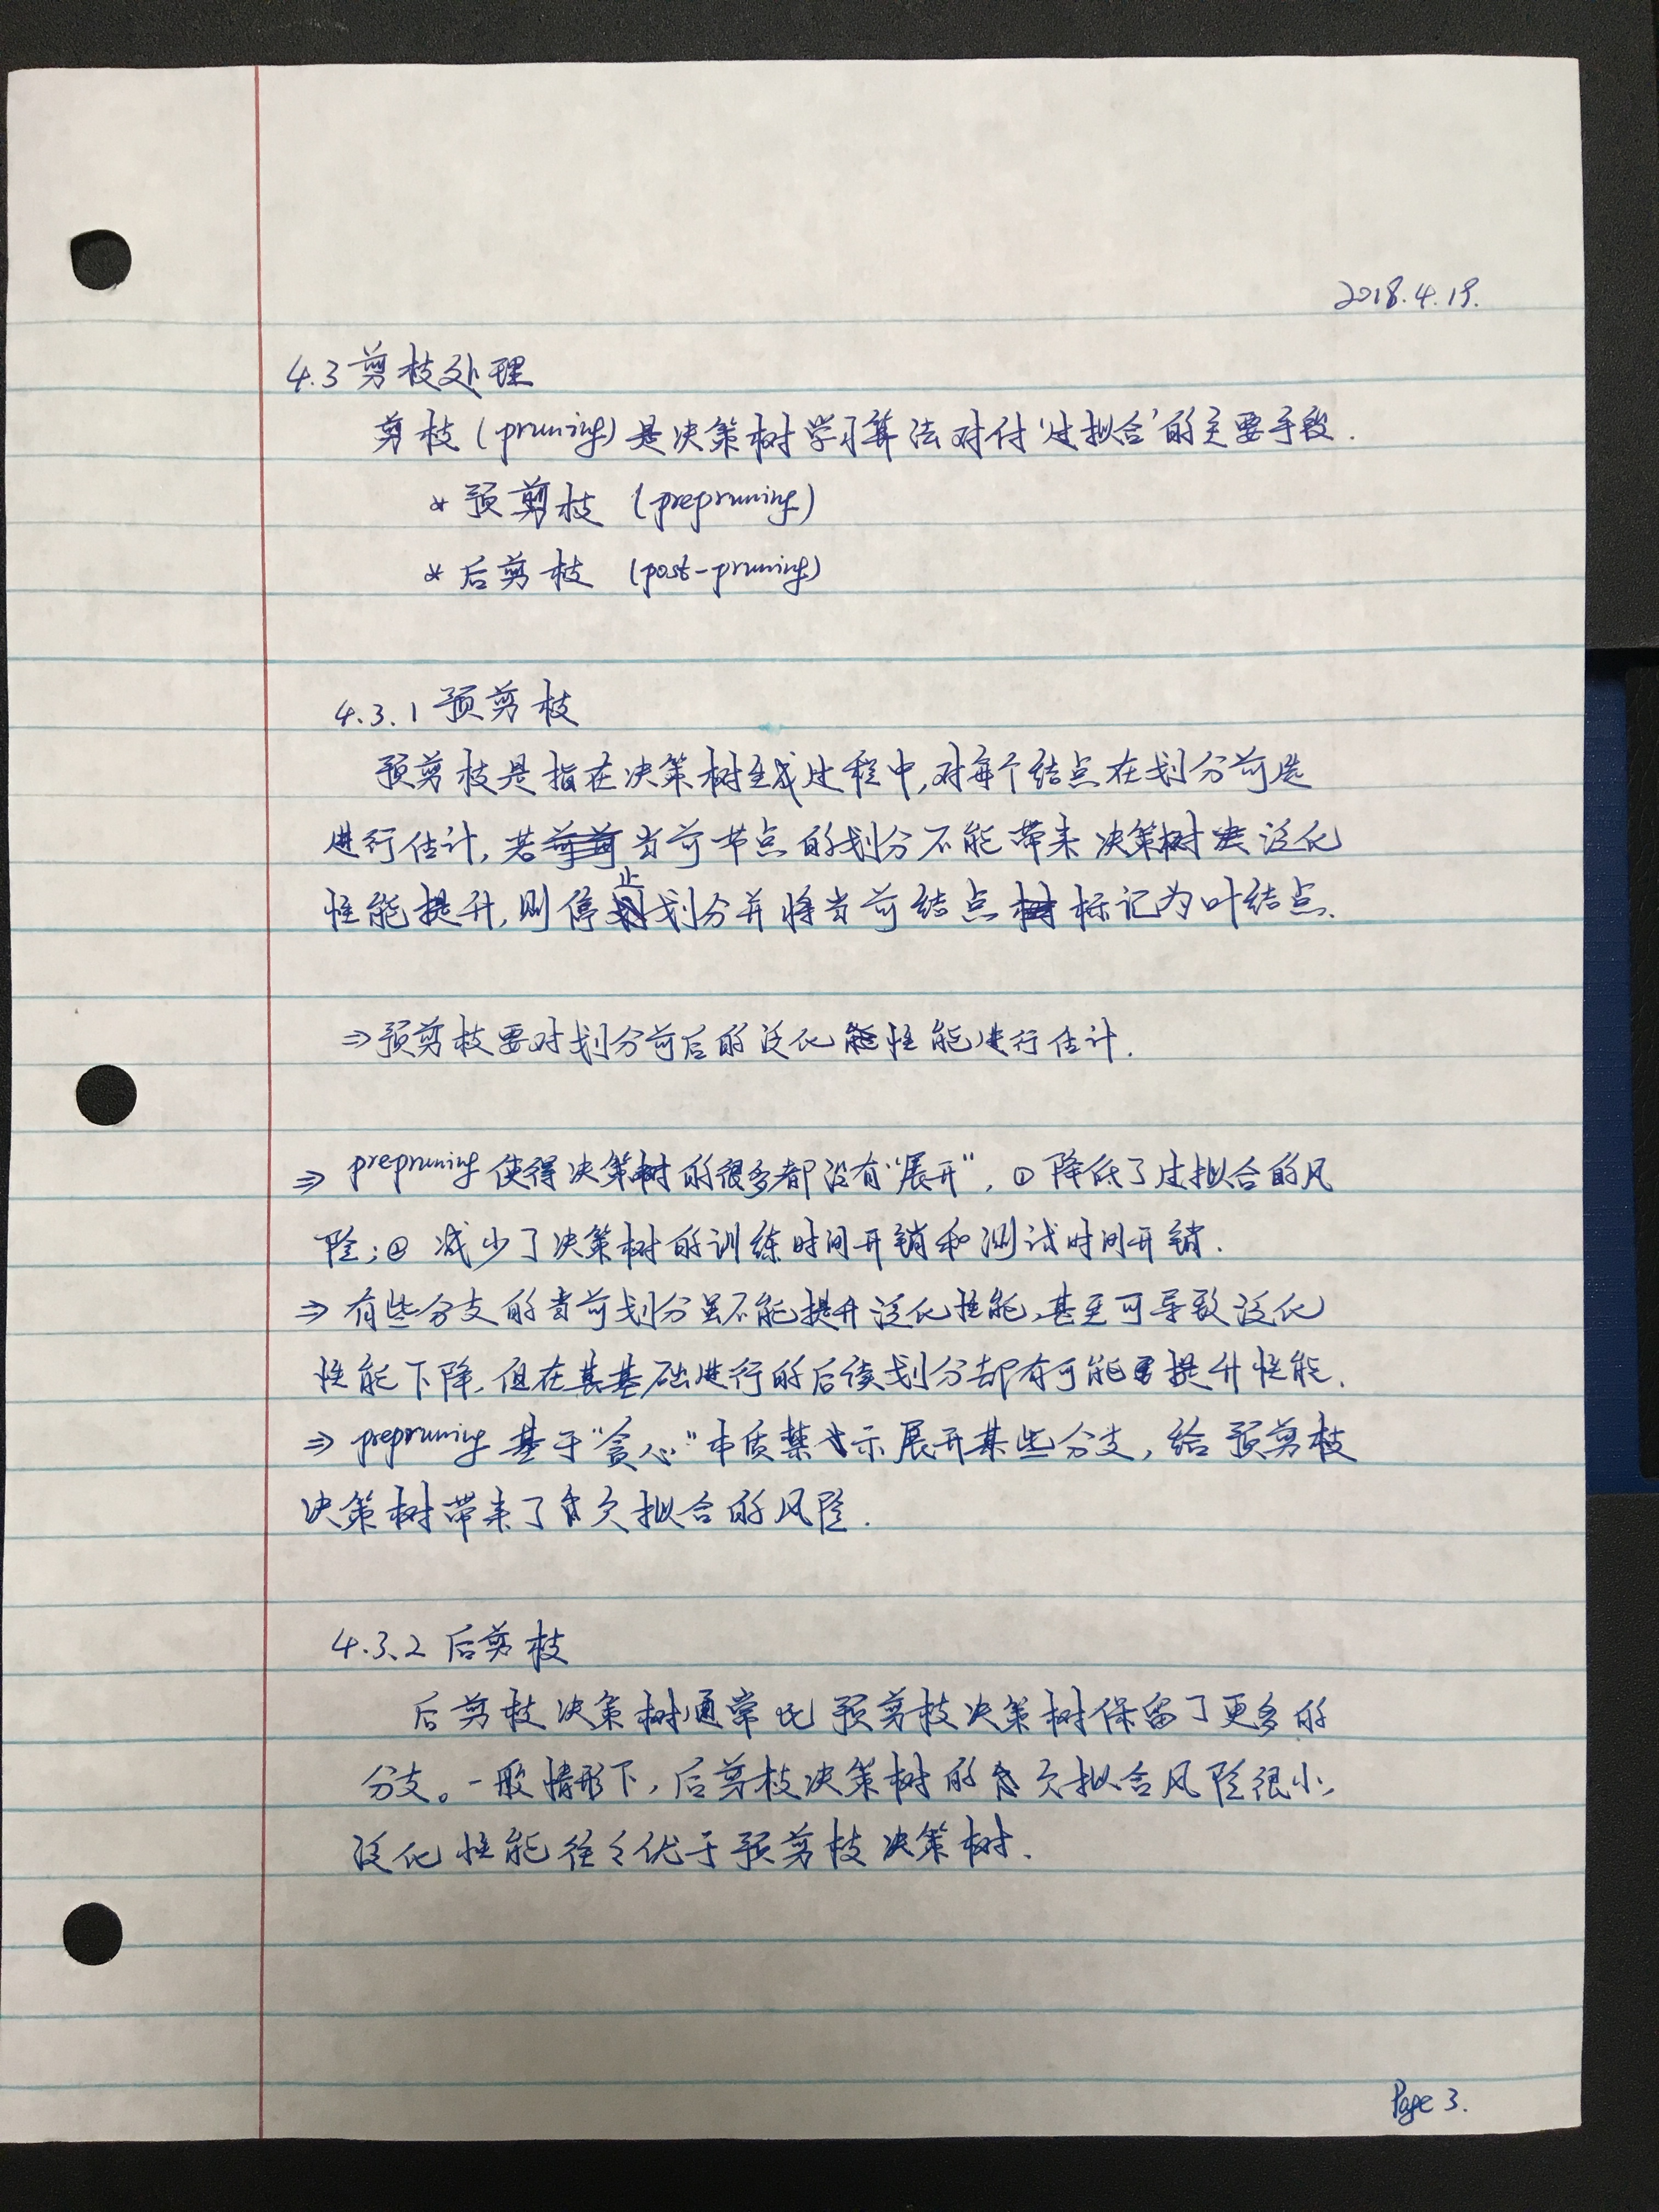 2018.4.19.
4.3 剪枝处理
剪枝 (pruning) 是决策树学习算法对付‘过拟合’的主要手段.
* 预剪枝 (prepruning)
* 后剪枝 (post-pruning)
4.3.1 预剪枝
预剪枝是指在决策树生成过程中,对每个结点在划分前先
进行估计,若当前节点的划分不能带来决策树泛化
性能提升,则停止划分并将当前结点标记为叶结点.
⇒预剪枝要对划分前后的泛化性能进行估计.
⇒ prepruning 使得决策树的很多都没有“展开”, ① 降低了过拟合的风
险; ② 减少了决策树的训练时间开销和测试时间开销.
⇒ 有些分支的当前划分虽不能提升泛化性能,甚至可导致泛化
性能下降,但在其基础进行的后续划分却有可能提升性能.
⇒ prepruning 基于“贪心”本质禁示展开某些分支, 给预剪枝
决策树带来了欠拟合的风险.
4.3.2 后剪枝
后剪枝决策树通常比预剪枝决策树保留了更多的
分支。一般情形下,后剪枝决策树的欠拟合风险很小,
泛化性能往々优于预剪枝决策树.
Page 3.